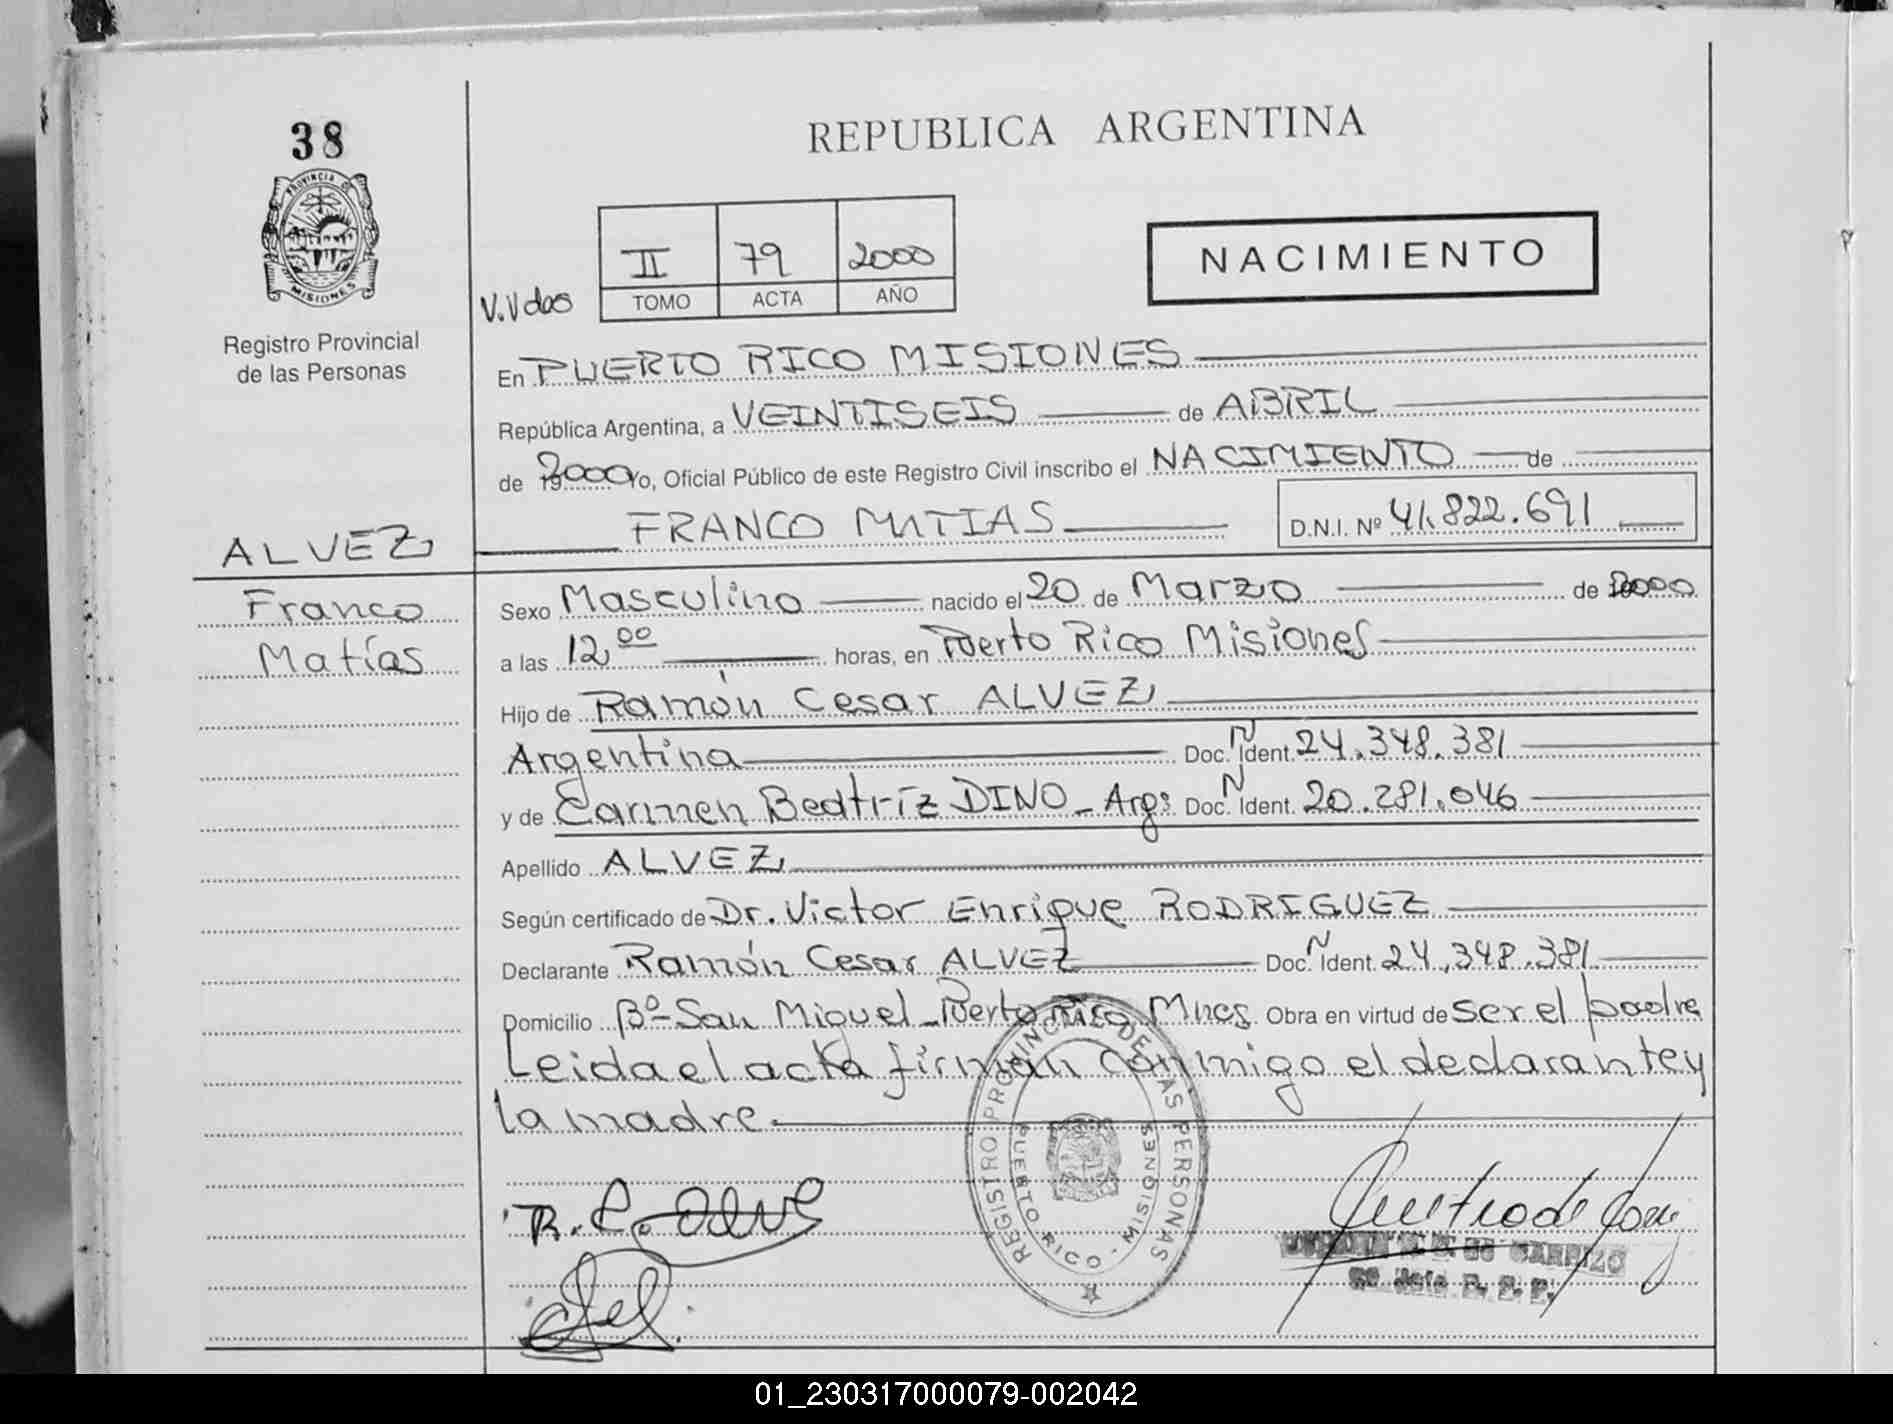 38
PROVINCIA DE
MISIONES
Registro Provincial
de las Personas
ALVEZ
Franco
Matías
REPUBLICA ARGENTINA
II 79 2000
TOMO ACTA AÑO
V.V dos
NACIMIENTO
En PUERTO RICO MISIONES
República Argentina, a VEINTISEIS de ABRIL
de 2000 Yo, Oficial Público de este Registro Civil inscribo el NACIMIENTO de
FRANCO MATIAS D.N.I. Nº 41.822.691
Sexo Masculino nacido el 20 de Marzo de 2000
a las 12,00 horas, en Puerto Rico Misiones
Hijo de Ramón Cesar ALVEZ
Argentina Doc. N Ident. 24.348.381
y de Carmen Beatríz DINO - Arg: Doc. N Ident. 20.281.046
Apellido ALVEZ
Según certificado de Dr. Victor Enrique RODRIGUEZ
Declarante Ramón Cesar ALVEZ Doc. N Ident. 24.348.381
Domicilio Bº San Miguel - Puerto Rico Mnes Obra en virtud de ser el padre
Leida el acta firman conmigo el declarante y
la madre.
REGISTRO PROVINCIAL DE LAS PERSONAS
PUERTO RICO - MISIONES
R. C. Alve
DE CARRIZO
01_230317000079-002042